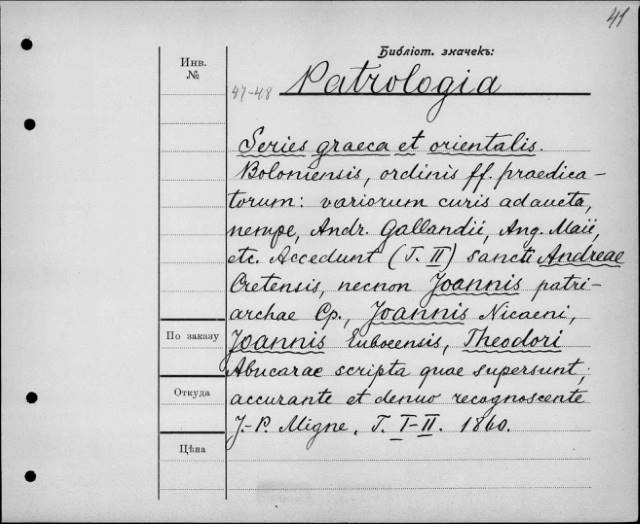 41
Библіот. значекъ:
Инв.
№
47-48 Patrologia
Series graeca et orientalis.
Boloniensis, ordinis ff. praedica-
torum: variorum curis adaucta,
nempe, Andr. Gallandii, Ang. Maii,
etc. Accedunt (T. II) sancti Andreae
Cretensis, necnon Joannis patri-
archae Cp., Joannis Nicaeni,
По заказу
Joannis Euboeensis, Theodori
Abucarae scripta quae supersunt;
Откуда
accurante et denuo recognoscente
J.-P. Migne. T. I-II. 1860.
Цѣна